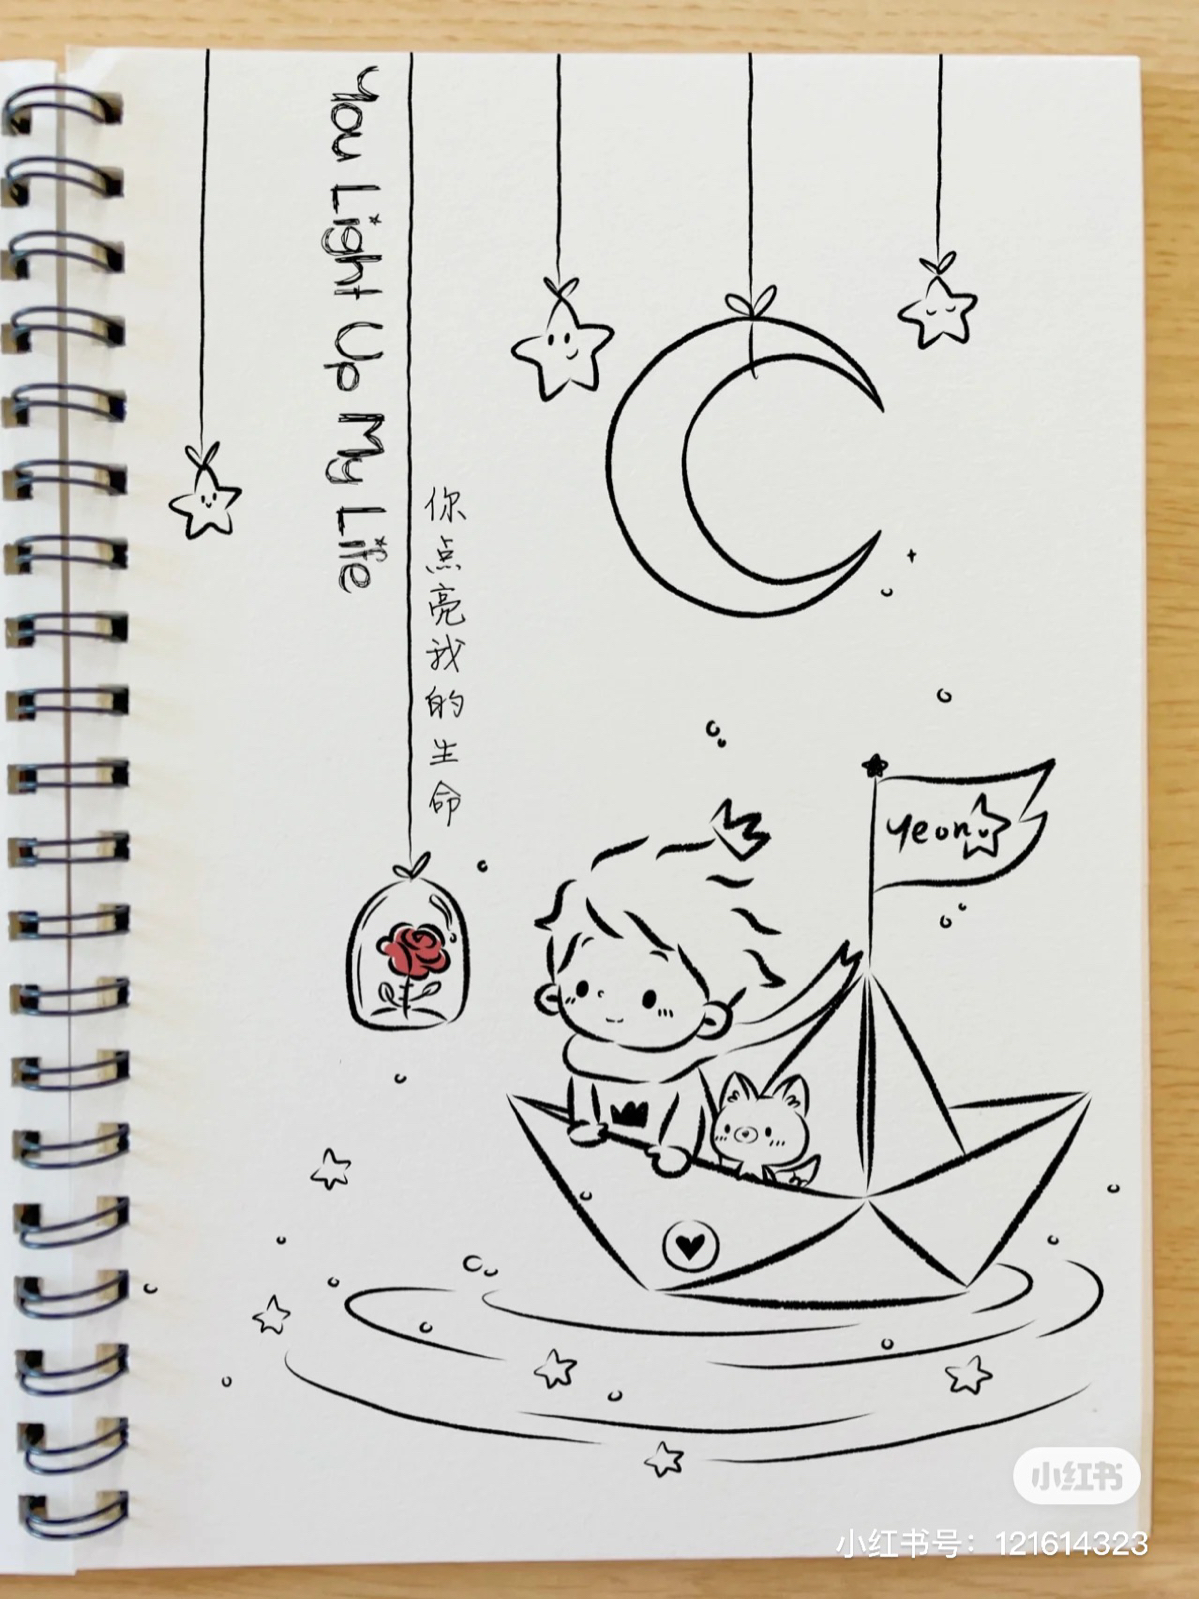 You Light Up My Life
你点亮我的生命
yeon
小红书
小红书号：121614323